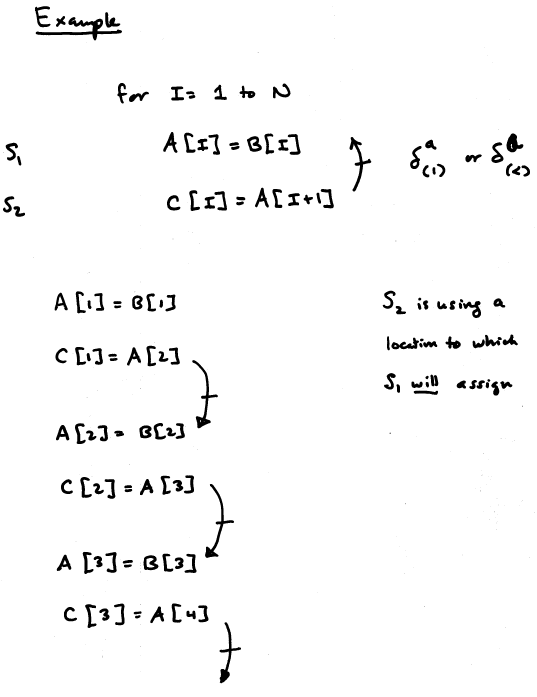 Example
for I = 1 to N
S₁ A[I] = B[I] δᵃ₍₁₎ or δᵃ₍<₎
S₂ C[I] = A[I+1]
A[1] = B[1] S₂ is using a
C[1] = A[2] location to which
S₁ will assign
A[2] = B[2]
C[2] = A[3]
A[3] = B[3]
C[3] = A[4]